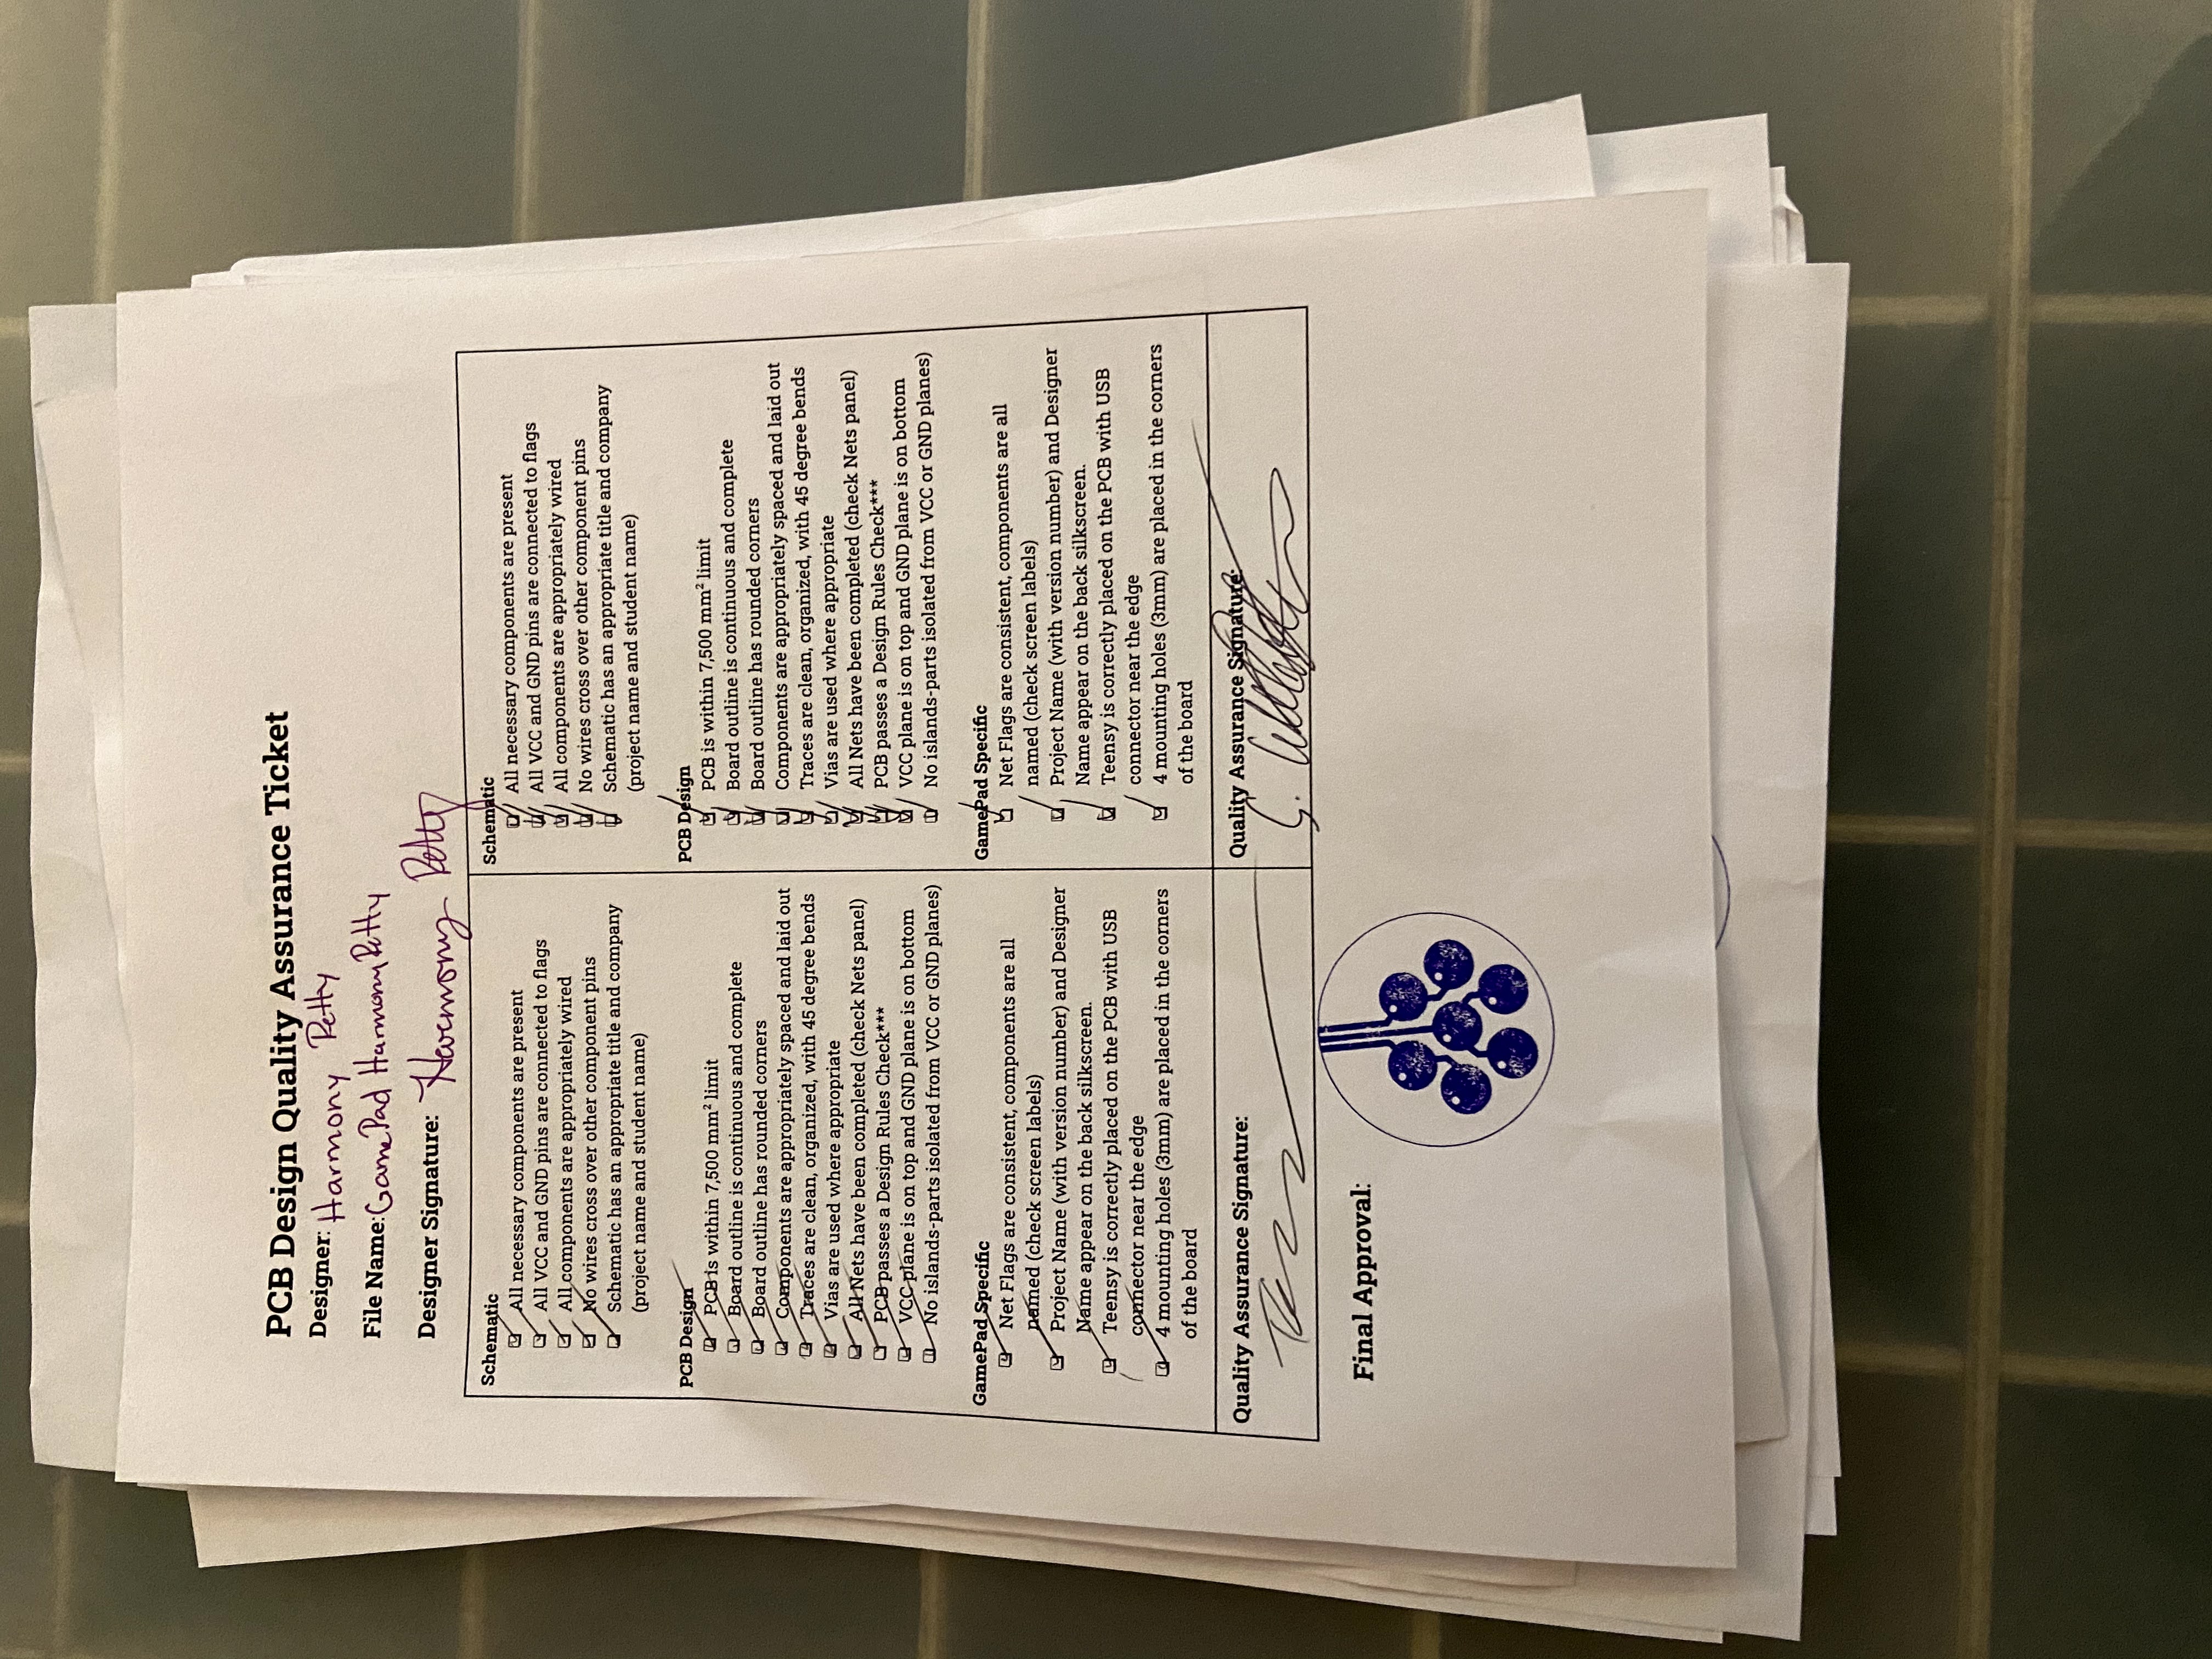 PCB Design Quality Assurance Ticket
Designer: Harmony Petty
File Name: GamePad HarmonyPetty
Designer Signature: Harmony Petty
Schematic
All necessary components are present
All VCC and GND pins are connected to flags
All components are appropriately wired
No wires cross over other component pins
Schematic has an appropriate title and company
(project name and student name)
PCB Design
PCB is within 7,500 mm² limit
Board outline is continuous and complete
Board outline has rounded corners
Components are appropriately spaced and laid out
Traces are clean, organized, with 45 degree bends
Vias are used where appropriate
All Nets have been completed (check Nets panel)
PCB passes a Design Rules Check***
VCC plane is on top and GND plane is on bottom
No islands-parts isolated from VCC or GND planes)
GamePad Specific
Net Flags are consistent, components are all
named (check screen labels)
Project Name (with version number) and Designer
Name appear on the back silkscreen.
Teensy is correctly placed on the PCB with USB
connector near the edge
4 mounting holes (3mm) are placed in the corners
of the board
Quality Assurance Signature:
Schematic
All necessary components are present
All VCC and GND pins are connected to flags
All components are appropriately wired
No wires cross over other component pins
Schematic has an appropriate title and company
(project name and student name)
PCB Design
PCB is within 7,500 mm² limit
Board outline is continuous and complete
Board outline has rounded corners
Components are appropriately spaced and laid out
Traces are clean, organized, with 45 degree bends
Vias are used where appropriate
All Nets have been completed (check Nets panel)
PCB passes a Design Rules Check***
VCC plane is on top and GND plane is on bottom
No islands-parts isolated from VCC or GND planes)
GamePad Specific
Net Flags are consistent, components are all
named (check screen labels)
Project Name (with version number) and Designer
Name appear on the back silkscreen.
Teensy is correctly placed on the PCB with USB
connector near the edge
4 mounting holes (3mm) are placed in the corners
of the board
Quality Assurance Signature:
S.
Final Approval: